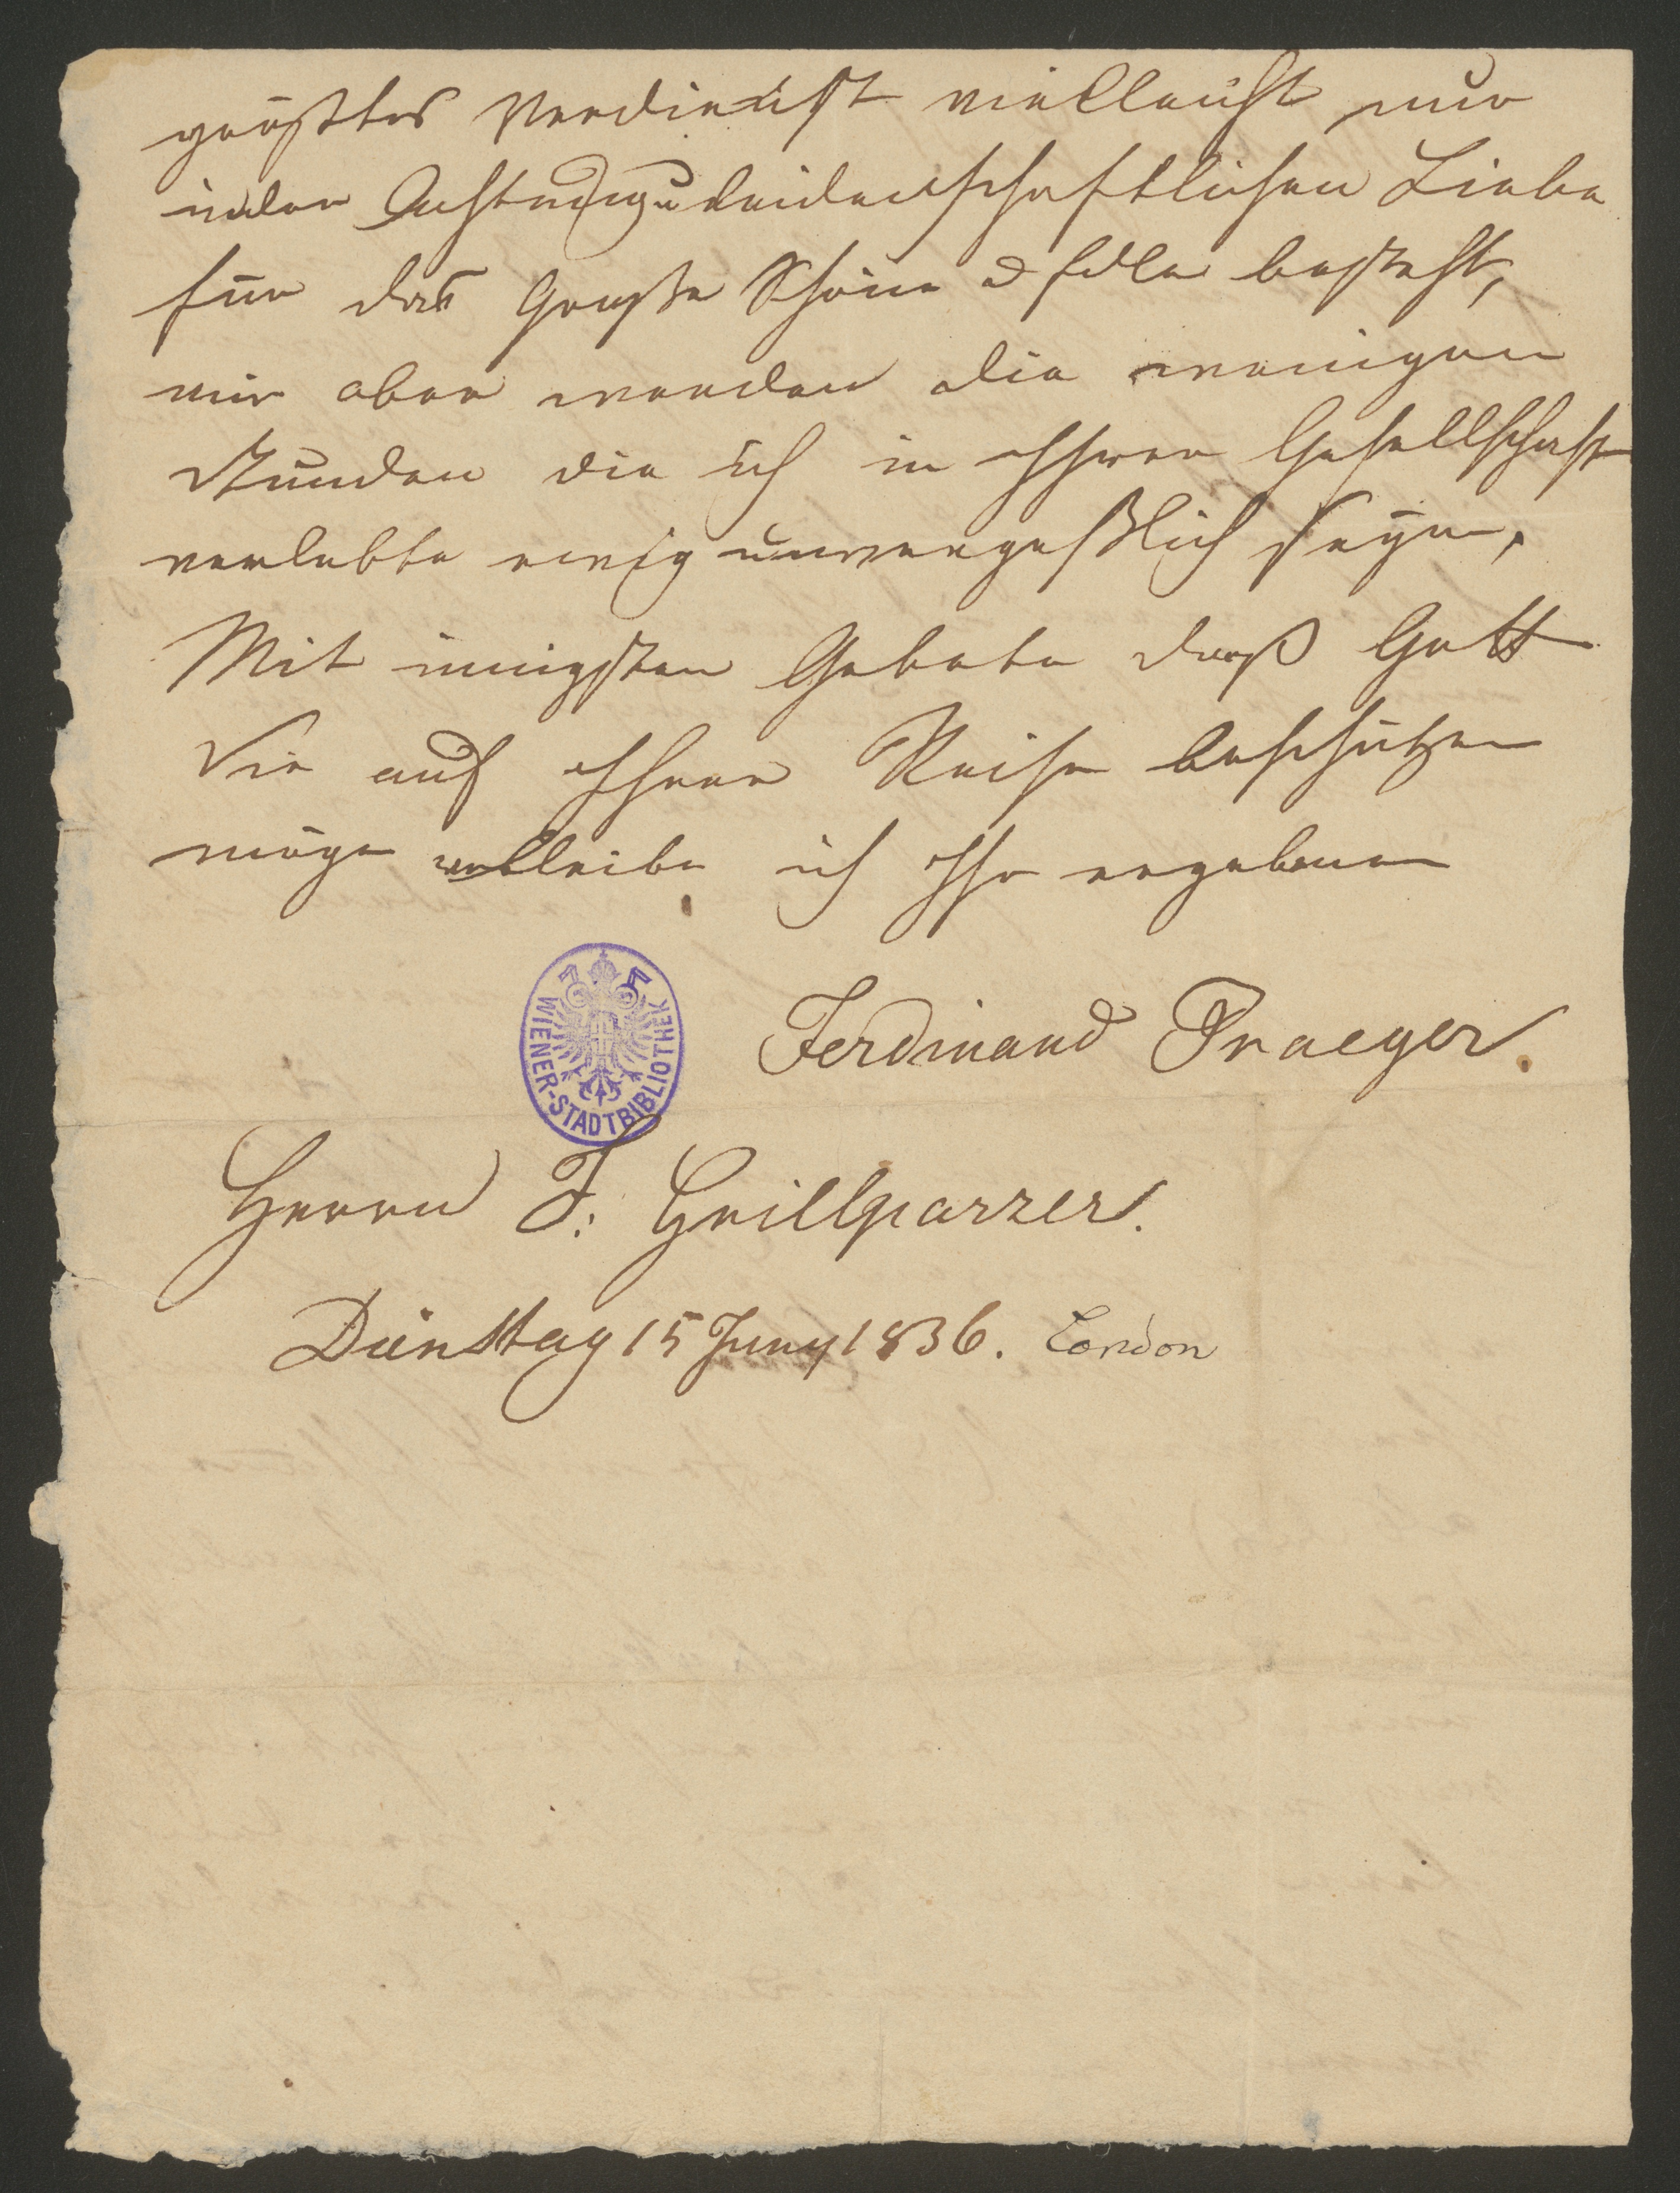 größtes Verdienst vielleicht nur
in der Achtung u leidenschaftlichen Liebe
für das Große Schöne & Edle besteht,
mir aber werden die wenigen
Stunden die ich in Ihrer Gesellschaft
verlebte ewig unvergeßlich seyn,
Mit innigsten Gebete daß Gott
Sie auf Ihrer Reise beschützen
möge verbleibe ich Ihr ergebener
Ferdinand Praeger.
WIENER-STADTBIBLIOTHEK
Herrn F: Grillparzer.
Dienstag 15 Juny 1836. London